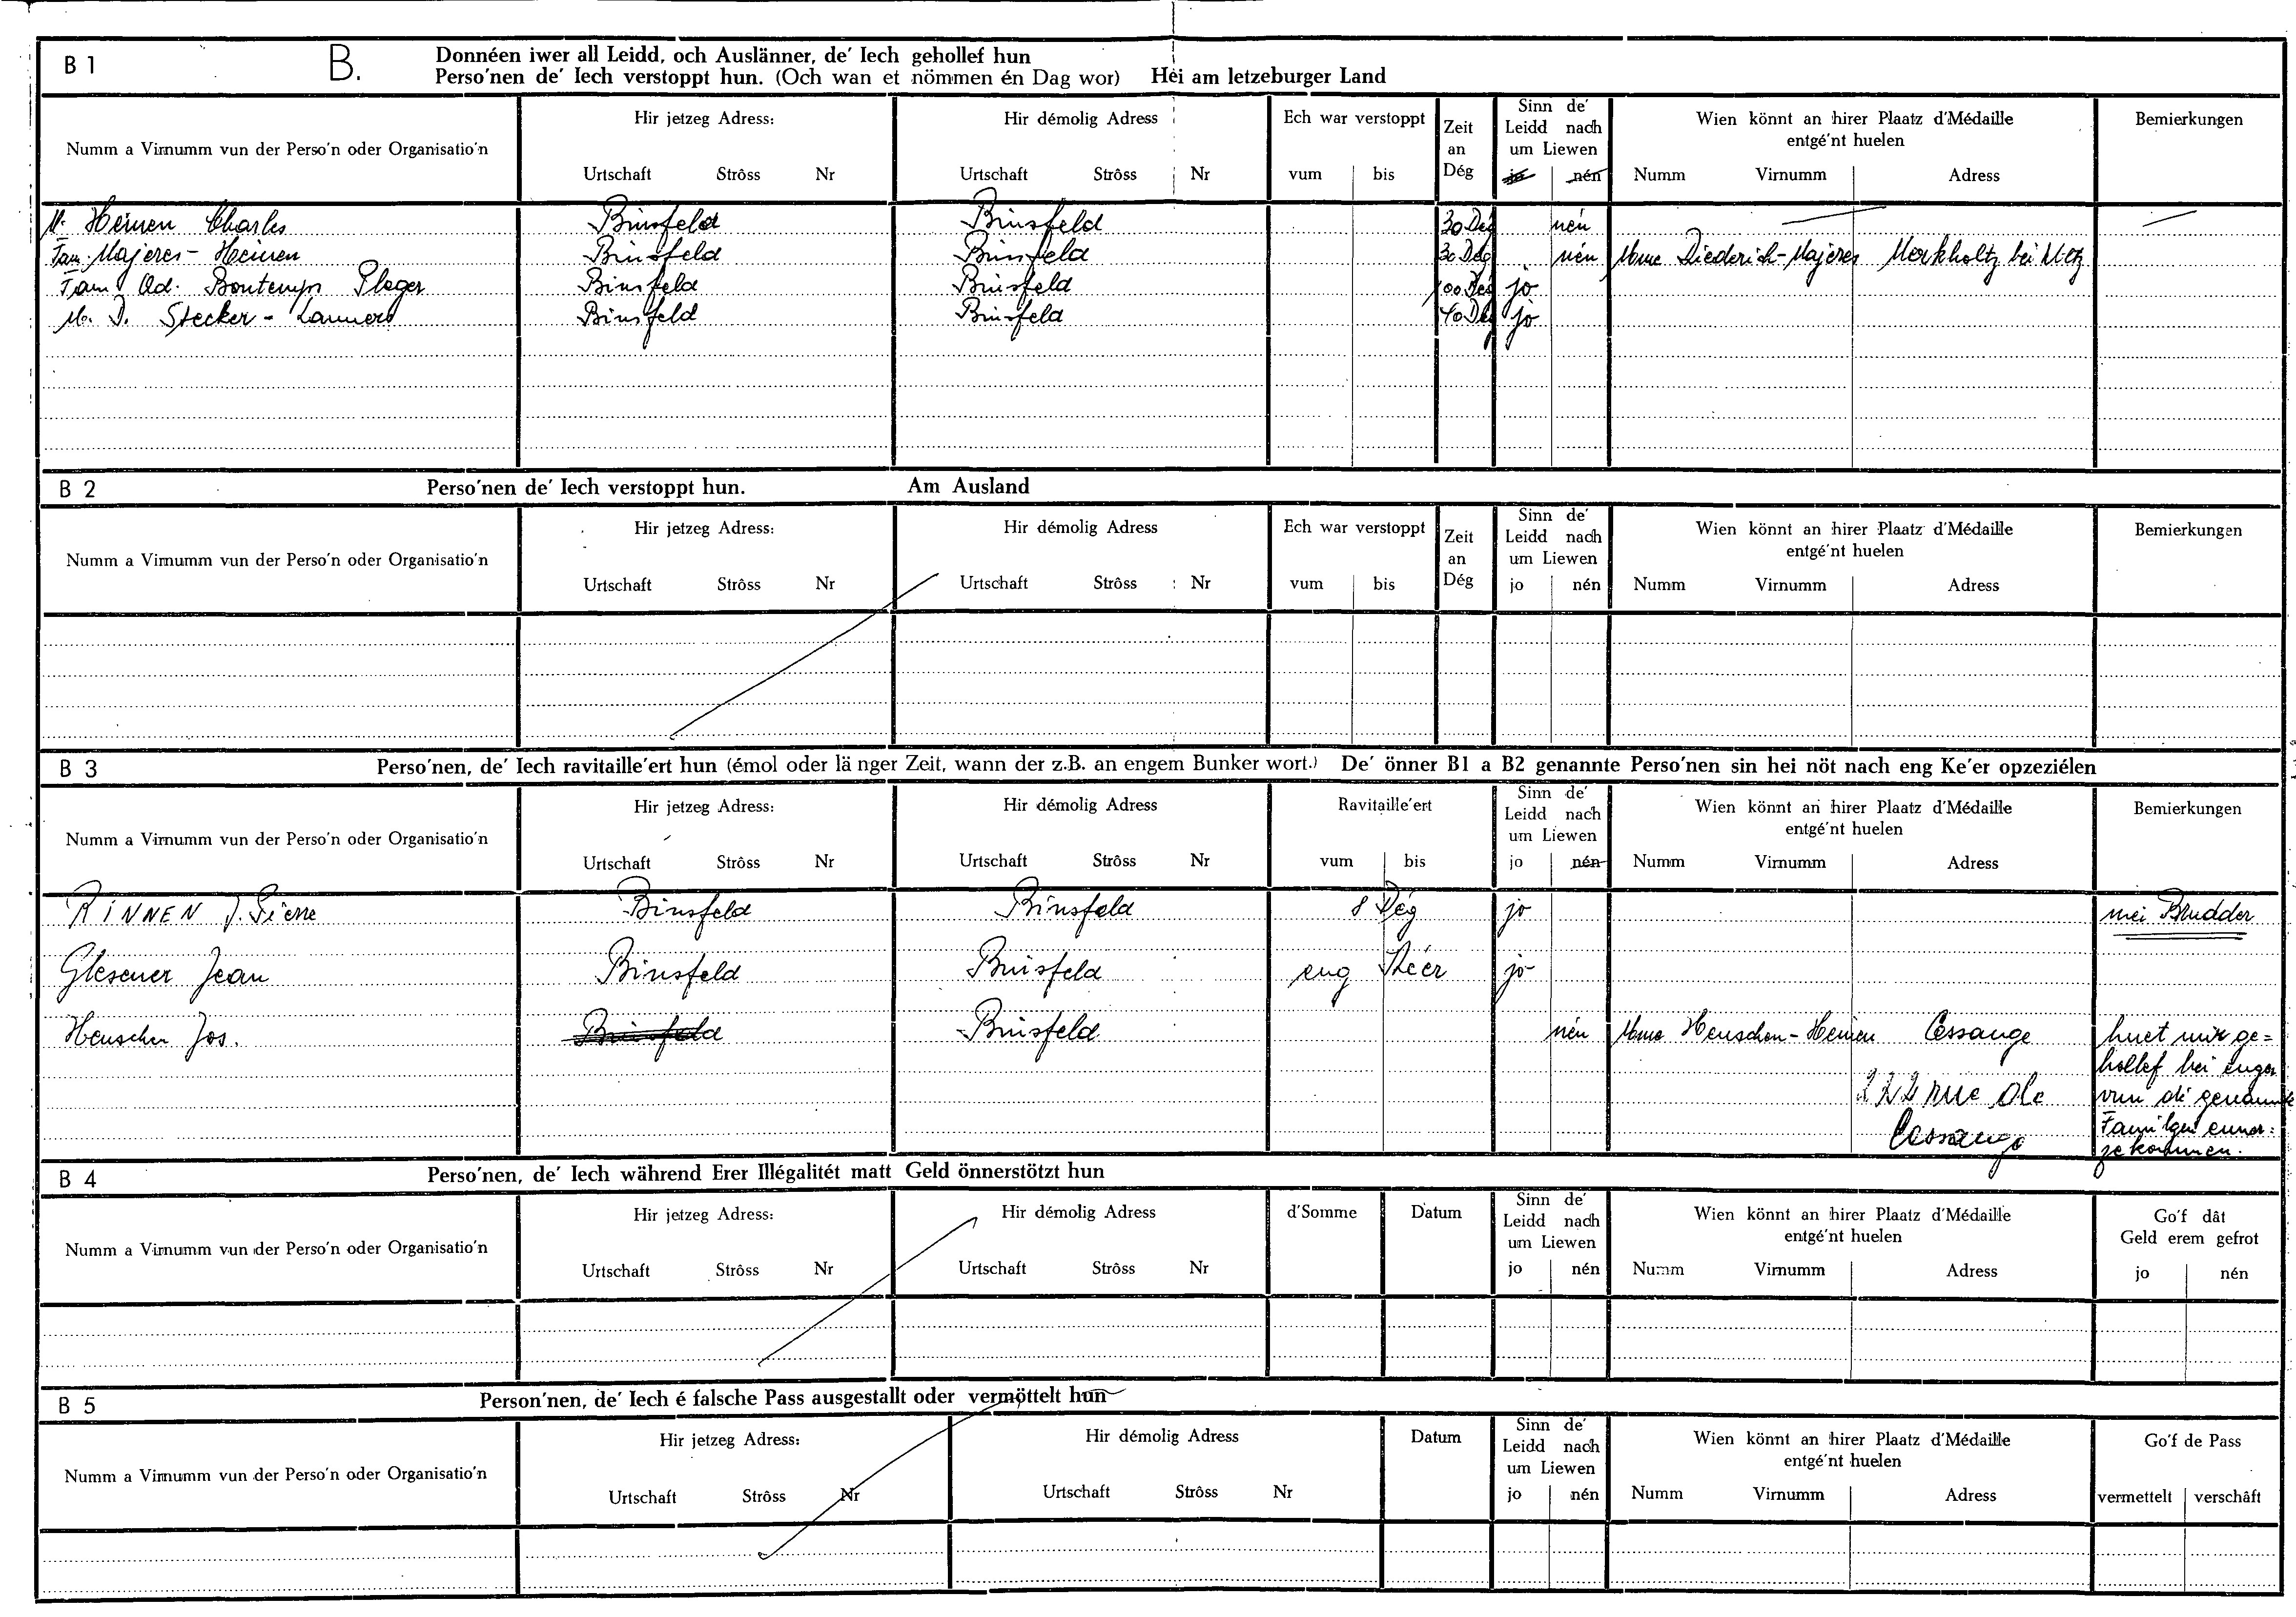 B 1 B. Donnéen iwer all Leidd, och Auslänner, de' Iech gehollef hun
Perso'nen de' Iech verstoppt hun. (Och wan et nömmen én Dag wor) Hei am letzeburger Land
Numm a Virnumm vun der Perso'n oder Organisatio'n
Hir jetzeg Adress:
Urtschaft Strôss Nr
Hir démolig Adress
Urtschaft Strôss Nr
Ech war verstoppt
vum bis
Zeit
an
Dég
Sinn de'
Leidd nach
um Liewen
jo nén
Wien könnt an hirer Plaatz d'Médaille
entgé'nt huelen
Numm Virnumm Adress
Bemierkungen
M. Heinen Charles Binsfeld Binsfeld 30 Dég nén
Fam. Majeres - Heinen Binsfeld Binsfeld 30 Dég nén Mme Diederich-Majeres Merkholtz bei
Fam. Ad. Bontemps Pleger Binsfeld Binsfeld 100 Dég jo
M. D. Stecker - Lanners Binsfeld Binsfeld 40 Dég jo
B 2 Perso'nen de' Iech verstoppt hun. Am Ausland
Numm a Virnumm vun der Perso'n oder Organisatio'n
Hir jetzeg Adress:
Urtschaft Strôss Nr
Hir démolig Adress
Urtschaft Strôss Nr
Ech war verstoppt
vum bis
Zeit
an
Dég
Sinn de'
Leidd nach
um Liewen
jo nén
Wien könnt an hirer Plaatz d'Médaille
entgé'nt huelen
Numm Virnumm Adress
Bemierkungen
B 3 Perso'nen, de' Iech ravitaille'ert hun (émol oder länger Zeit, wann der z.B. an engem Bunker wort.) De' önner B1 a B2 genannte Perso'nen sin hei nöt nach eng Ke'er opzeziélen
Numm a Virnumm vun der Perso'n oder Organisatio'n
Hir jetzeg Adress:
Urtschaft Strôss Nr
Hir démolig Adress
Urtschaft Strôss Nr
Ravitaille'ert
vum bis
Sinn de'
Leidd nach
um Liewen
jo nén
Wien könnt an hirer Plaatz d'Médaille
entgé'nt huelen
Numm Virnumm Adress
Bemierkungen
RINNEN J. Pierre Binsfeld Binsfeld 8 Dég jo mei Brudder
Glesener Jean Binsfeld Binsfeld eng Kéer jo
Henschen Jos. Binsfeld Binsfeld nén Mme Henschen-Heinen Cessange huet mir ge=
hollef bei enger
222 rue de vun di genannte
Cessange Familjen enner=
zekommen.
B 4 Perso'nen, de' Iech während Erer Illégalitét matt Geld önnerstötzt hun
Numm a Virnumm vun der Perso'n oder Organisatio'n
Hir jetzeg Adress:
Urtschaft Strôss Nr
Hir démolig Adress
Urtschaft Strôss Nr
d'Somme
Datum
Sinn de'
Leidd nach
um Liewen
jo nén
Wien könnt an hirer Plaatz d'Médaille
entgé'nt huelen
Numm Virnumm Adress
Go'f dât
Geld erem gefrot
jo nén
B 5 Person'nen, de' Iech é falsche Pass ausgestallt oder vermöttelt hun
Numm a Virnumm vun der Perso'n oder Organisatio'n
Hir jetzeg Adress:
Urtschaft Strôss Nr
Hir démolig Adress
Urtschaft Strôss Nr
Datum
Sinn de'
Leidd nach
um Liewen
jo nén
Wien könnt an hirer Plaatz d'Médaille
entgé'nt huelen
Numm Virnumm Adress
Go'f de Pass
vermettelt verschâft